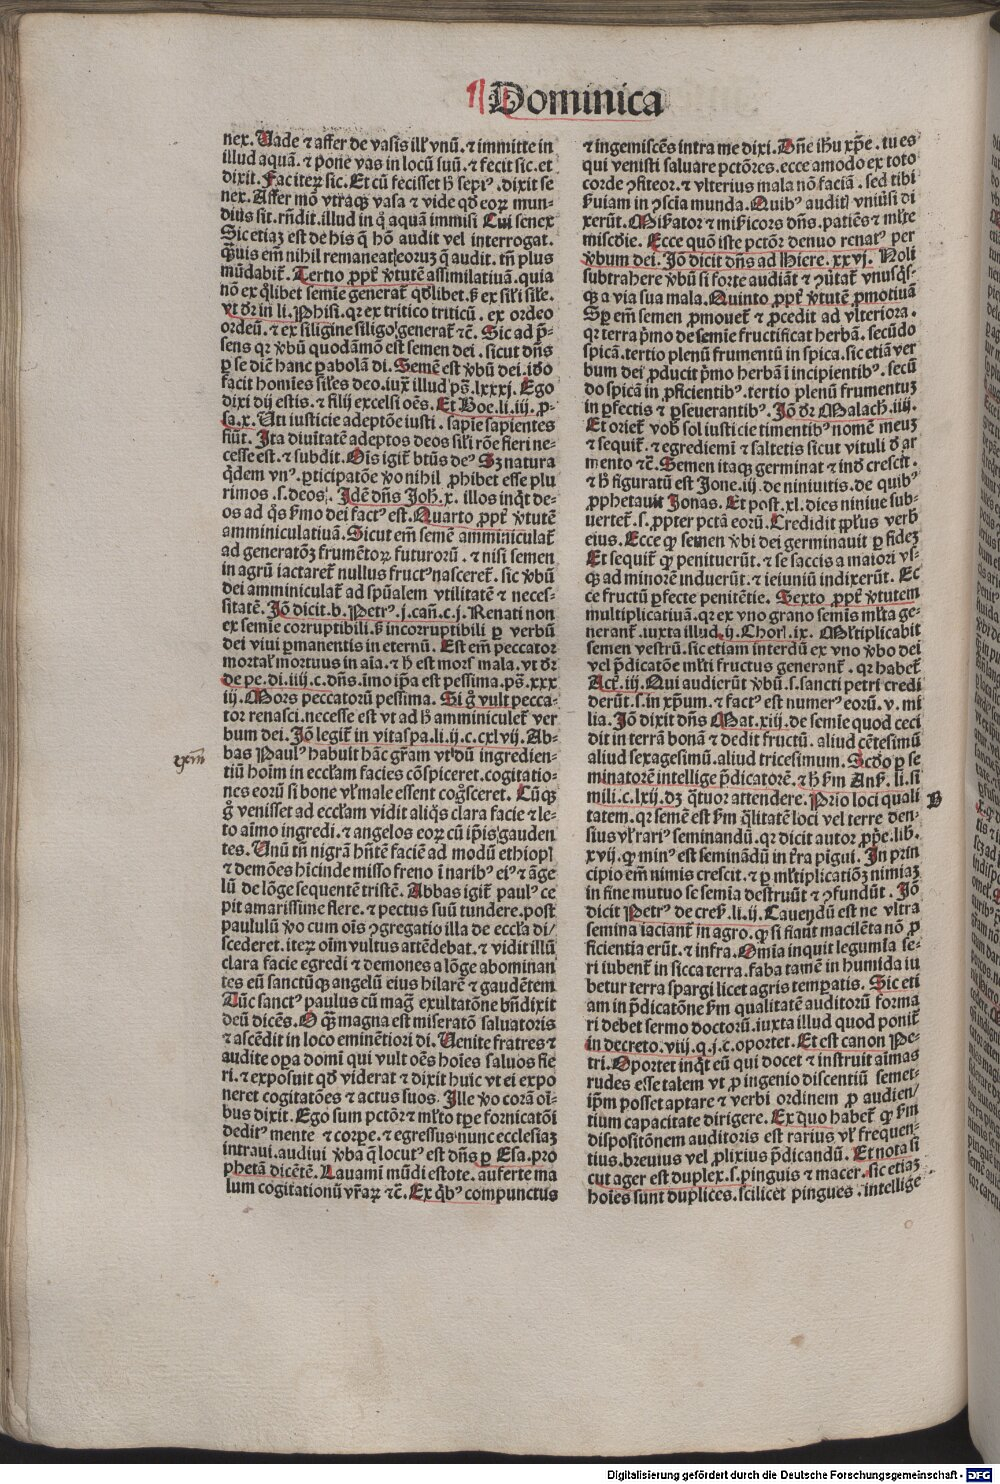 Dominica
nex. Uade ⁊ affer de vasis illꝭ vnū. ⁊ immitte in
illud aquā. ⁊ pone vas in locū suū. ⁊ fecit sic. et
dixit. Fac iteꝝ sic. Et cū fecisset h̄ sepiꝰ. dixit se
nex. Affer mō vtraqꝫ vasa ⁊ vide qd̄ eoꝝ mun-
dius sit. rn̄dit. illud in q̄ aquā immisi Cui senex
Sic etiaꝫ est de his q̄ hō audit vel interrogat.
Quis em̄ nihil remaneat eorꝫ q̄ audit. tn̄ plus
mūdabit̄. Tertio ꝓpt̄ v̄tutē assimilatiuā. quia
nō ex q̄libet semīe generat̄ qd̄libet. s̄ ex sil̓i sil̓e.
vt dr̄ in li. Phisi. qꝛ ex tritico triticū. ex ordeo
ordeū. ⁊ ex siligine siligo generat̄ ⁊c̄. Sic ad p̄-
sens qꝛ v̄bū quodāmō est semen dei. sicut dn̄s
ꝑ se dic̄ hanc ꝑabolā di. Semē est v̄bū dei. iđo
facit homīes sil̓es deo. iux̄ illud ps̄. lxxxj. Ego
dixi dij estis. ⁊ filij excelsi oēs. Et Boe. li. iij. ꝓ-
sa. x. Uti iusticie adeptōe iusti. sapīe sapientes
fiūt. Ita diuītatē adeptos deos sil̓i rōe fieri ne-
cesse est. ⁊ subdit. Oīs igit̄ btūs deꝰ Sꝫ natura
q̄dem vnꝰ. ꝑticipatōe v̄o nihil ꝓhibet esse plu
rimos .s. deos. Idē dn̄s Joh̄. x. illos inq̄t de-
os ad q̄s s̄mo dei factꝰ est. Quarto ꝓpt̄ v̄tutē
amminiculatiuā. Sicut em̄ semē amminiculat̄
ad generatōꝫ frumētoꝝ futurorū. ⁊ nisi semen
in agrū iactaret̄ nullus fructꝰ nasceret̄. sic v̄bū
dei amminiculat̄ ad spūalem vtilitatē ⁊ neces-
sitatē. Jō dicit .b. Petrꝰ .j. cañ. c. j. Renati non
ex semīe corruptibili. s̄ incorruptibili ꝑ verbū
dei viui ꝑmanentis in eternū. Est em̄ peccator
mortal̓ mortuus in aīa. ⁊ h̄ est mors mala. vt dr̄
de pe. di. iiij. c. dn̄s. imo ip̄a est pessima. ps̄. xxx
iij. Mors peccatorū pessima. Si g̊ vult pecca-
tor renasci. necesse est vt ad h̄ amminiculet̄ ver
bum dei. Jō legit̄ in vitaspa. li. ij. c. cxlvij. Ab-
bas Paulꝰ habuit hāc gr̄am vt dū ingredien-
tiū hoīm in eccl̓am facies cōspiceret. cogitatio-
nes eorū si bone vl̓ male essent cog̊sceret. Cūqꝫ
g̊ venisset ad eccl̓am vidit aliq̄s clara facie ⁊ le-
to aīmo ingredi. ⁊ angelos eoꝝ cū ip̄is gauden
tes. Unū tn̄ nigrā hn̄tē faciē ad modū ethiopꝭ
⁊ demōes hīcinde misso freno ī naribꝰ eiꝰ ⁊ āge
lū de lōge sequentē tristē. Abbas igit̄ paulꝰ ce
pit amarissime flere. ⁊ pectus suū tundere. post
paululū v̄o cum oīs ꝯgregatio illa de eccl̓a di/
scederet. iteꝝ oīm vultus attēdebat. ⁊ vidit illū
clara facie egredi ⁊ demones a lōge abominan
tes eū sanctūqꝫ angelū eius hilarē ⁊ gaudētem
Tūc sanctꝰ paulus cū maḡ exultatōne bn̄dixit
deū dicēs. O q̄ꝫ magna est miseratō saluatoris
⁊ ascēdit in loco eminētiori di. Uenite fratres ⁊
audite oꝑa domī qui vult oēs hoīes saluos fie
ri. ⁊ exposuit qd̄ viderat ⁊ dixit huic vt ei expo
neret cogitatōes ⁊ actus suos. Ille v̄o corā oī-
bus dixit. Ego sum pctōr ⁊ ml̓to tp̄e fornicatōi
deditꝰ mente ⁊ corꝑe. ⁊ egressus nunc ecclesiaꝫ
intraui. audiui v̄ba q̄ locutꝰ est dn̄s ꝑ Esa. pro
phetā dicētē. Lauamī mūdi estote. auferte ma
lum cogitationū vr̄aꝝ ⁊c̄. Ex q̄bꝰ compunctus
exm̄
⁊ ingemiscēs intra me dixi. Dn̄e ih̄u xp̄e. tu es
qui venisti saluare pctōres. ecce amodo ex toto
corde ꝯfiteor. ⁊ vlterius mala nō faciā. sed tibi
s̄uiam in ꝯscīa munda. Quibꝰ auditꝭ vniūsi di
xerūt. Miserator ⁊ miser̄icors dn̄s. patiēs ⁊ ml̓te
misc̄die. Ecce quō iste pctōr denuo renatꝰ per
v̄bum dei. Jō dicit dn̄s ad Hiere. xxvj. Noli
subtrahere v̄bū si forte audiāt ⁊ ꝯūtat̄ vnusq̄s-
qꝫ a via sua mala. Quinto ꝓpt̄ v̄tutē ꝓmotiuā
Sꝑ em̄ semen ꝓmouet̄ ⁊ ꝓcedit ad vlteriora.
qꝛ terra p̄mo de semīe fructificat herbā. secūdo
spicā. tertio plenū frumentū in spica. sic etiā ver
bum dei ꝓducit p̄mo herbā ī incipientibꝰ. secū
do spicā in ꝓficientibꝰ. tertio plenū frumentuꝫ
in ꝑfectis ⁊ ꝑseuerantibꝰ. Jō dr̄ Malach̄. iiij.
Et oriet̄ vob̄ sol iusticie timentibꝰ nomē meuꝫ
⁊ sequit̄. ⁊ egrediemī ⁊ saltetis sicut vituli đ ar
mento ⁊c̄. Semen itaqꝫ germinat ⁊ inđ crescit.
⁊ h̄ figuratū est Jone. iij. de niniuitis. de quibꝰ
ꝓphetauit Jonas. Et post .xl. dies niniue sub-
uertet̄ .s. ꝓpter pctā eorū. Credidit ppl̓us verb
eius. Ecce qꝫ semen v̄bi dei germinauit ꝑ fideꝫ
Et sequit̄ qꝫ penituerūt. ⁊ se saccis a maiori vs-
qꝫ ad minorē induerūt. ⁊ ieiuniū indixerūt. Ec
ce fructū ꝑfecte penitētie. Sexto ꝓpt̄ v̄tutem
multiplicatiuā. qꝛ ex vno grano semīs ml̓ta ge-
nerant̄. iuxta illud .ij. Chorꝭ. ix. Ml̓tiplicabit
semen vestrū. sic etiam interdū ex vno v̄bo dei
vel p̄dicatōe ml̓ti fructus generant̄. qꝛ habet̄
Act̄. iij. Qui audierūt v̄bū .s. sancti petri credi
derūt .s. in xp̄um. ⁊ factꝰ est numerꝰ eorū .v. mi
lia. Jō dixit dn̄s Mat. xiij. de semīe quod ceci
dit in terrā bonā ⁊ dedit fructū. aliud cētesimū
aliud sexagesimū. aliud tricesimum. Scđo ꝑ se
minatorē intellige p̄dicatorē. ⁊ h̄ s̄m Ans̄. li. si
mili. c. lxij. dꝫ q̄tuor attendere. Prīo loci quali
tatem. qꝛ semē est s̄m q̄litatē loci vel terre den-
sius vl̓ rariꝰ seminandū. qꝛ dicit autor ꝓp̄e. lib.
xvij. qꝫ minꝰ est seminādū in tr̄a pīgui. In prin
cipio em̄ nimis crescit. ⁊ ꝑ ml̓tiplicatiōꝫ nimiaꝫ
in fine mutuo se semīa destruūt ⁊ ꝯfundūt. Jō
dicit Petrꝰ de cres̄. li. ij. Cauendū est ne vltra
semina iaciant̄ in agro. qꝫ si fiant macilēta nō ꝓ
ficientia erūt. ⁊ infra. Omīa inquit legumīa se-
ri iubent̄ in sicca terra. faba tamē in humida iu
betur terra spargi licet agris temꝑatis. Sic eti
am in p̄dicatōne s̄m qualitatē auditorū forma
ri debet sermo doctorū. iuxta illud quod ponit̄
in decreto. viij. q. j. c. oportet. Et est canon Pe-
tri. Oportet inq̄t eū qui docet ⁊ instruit aīmas
rudes esse talem vt ꝓ ingenio discentiū semet-
ip̄m posset aptare ⁊ verbi ordinem ꝓ audien/
tium capacitate dirigere. Ex quo habet̄ qꝫ s̄m
dispositōnem auditoris est rarius vl̓ frequen-
tius. breuius vel ꝓlixius p̄dicandū. Et nota si
cut ager est duplex .s. pinguis ⁊ macer. sic etiaꝫ
hoīes sunt duplices. scilicet pingues. intellige
B
Digitalisierung gefördert durch die Deutsche Forschungsgemeinschaft - DFG